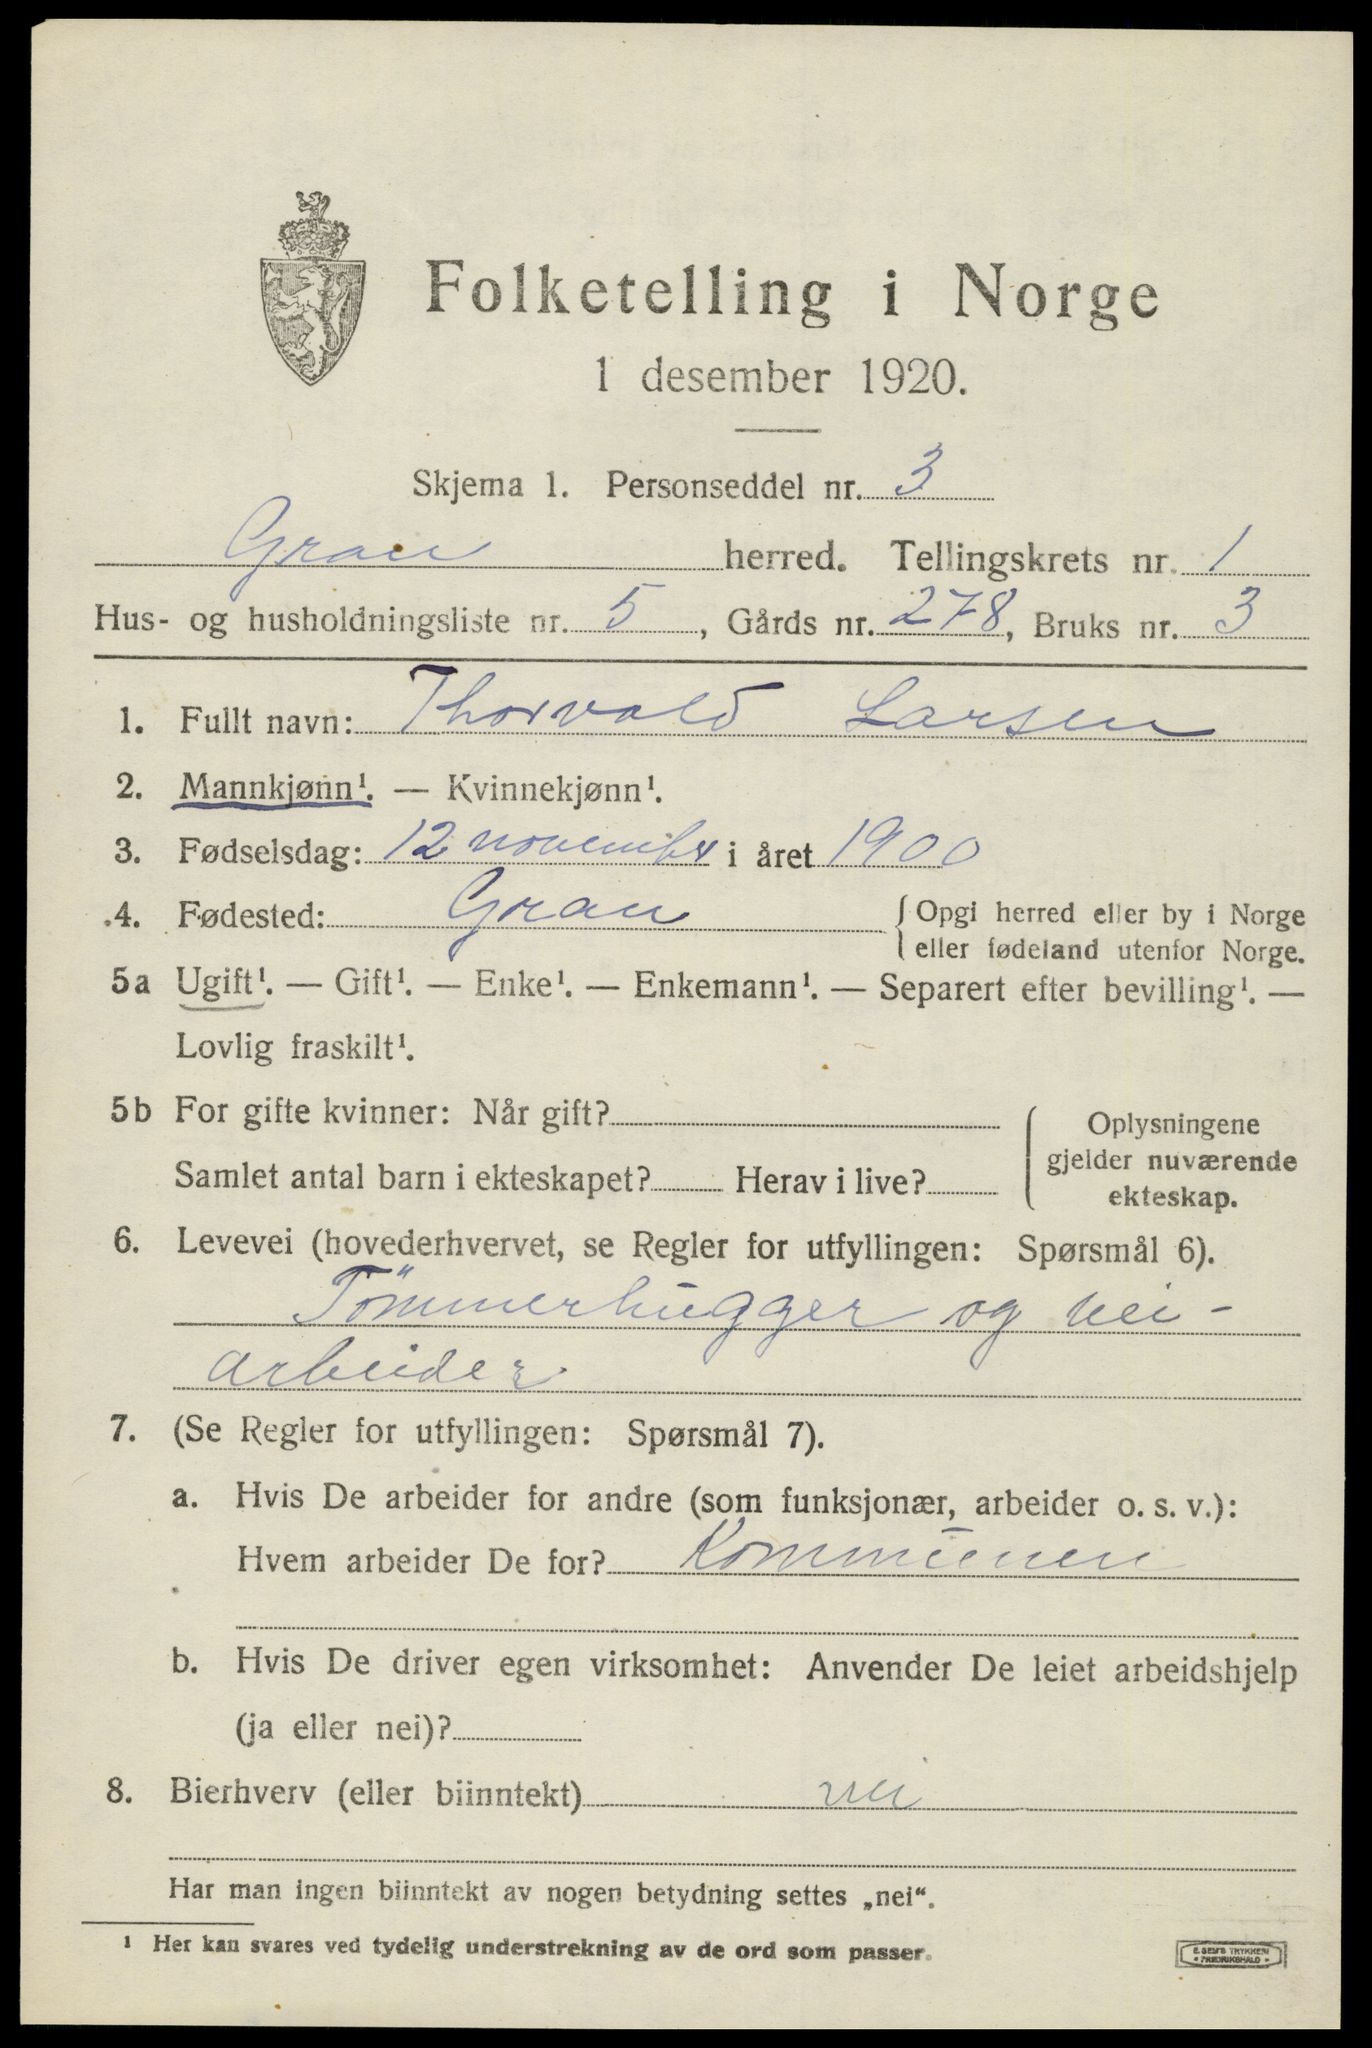 Folketelling i Norge
1 desember 1920.
Skjema 1. Personseddel nr. 3
Gran herred. Tellingskrets nr. 1
Hus- og husholdningsliste nr. 5, Gårds nr. 278, Bruks nr. 3
1. Fullt navn: Thorvald Larsen
2. Mannkjønn¹. — Kvinnekjønn¹.
3. Fødselsdag: 12 november i året 1900
4. Fødested: Gran {Opgi herred eller by i Norge
eller fødeland utenfor Norge.
5a Ugift¹. — Gift¹. — Enke¹. — Enkemann¹. — Separert efter bevilling¹. —
Lovlig fraskilt¹.
5b For gifte kvinner: Når gift?
Samlet antal barn i ekteskapet? Herav i live?
Oplysningene
gjelder nuværende
ekteskap.
6. Levevei (hovederhvervet, se Regler for utfyllingen: Spørsmål 6).
Tömmerhugger og vei-
arbeider
7. (Se Regler for utfyllingen: Spørsmål 7).
a. Hvis De arbeider for andre (som funksjonær, arbeider o. s. v.):
Hvem arbeider De for? Kommunen
b. Hvis De driver egen virksomhet: Anvender De leiet arbeidshjelp
(ja eller nei)?
8. Bierhverv (eller biinntekt) nei
Har man ingen biinntekt av nogen betydning settes „nei“.
¹ Her kan svares ved tydelig understrekning av de ord som passer.
E. SEM'S TRYKKERI
• FREDRIKSHALD •